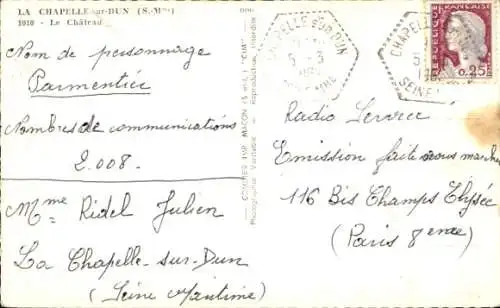 LA CHAPELLE-sur-DUN (S.-Mme)
1010 - Le Château
Nom de personnage
Parmentier
Nombres de communications
2.008.
Mme Ridel Julien
La Chapelle-sur-Dun
(Seine Maritime)
COMBIER IMP. MACON (S.-et-L.) "CIM"
Photographie Véritable - Reproduction Interdite
CHAPELLE SUR DUN
5-3
CHAPELLE
SEINE
FRANÇAISE
0,25
Radio Service
Emission faite vous
116 Bis Champs Elysée
(Paris 8eme)